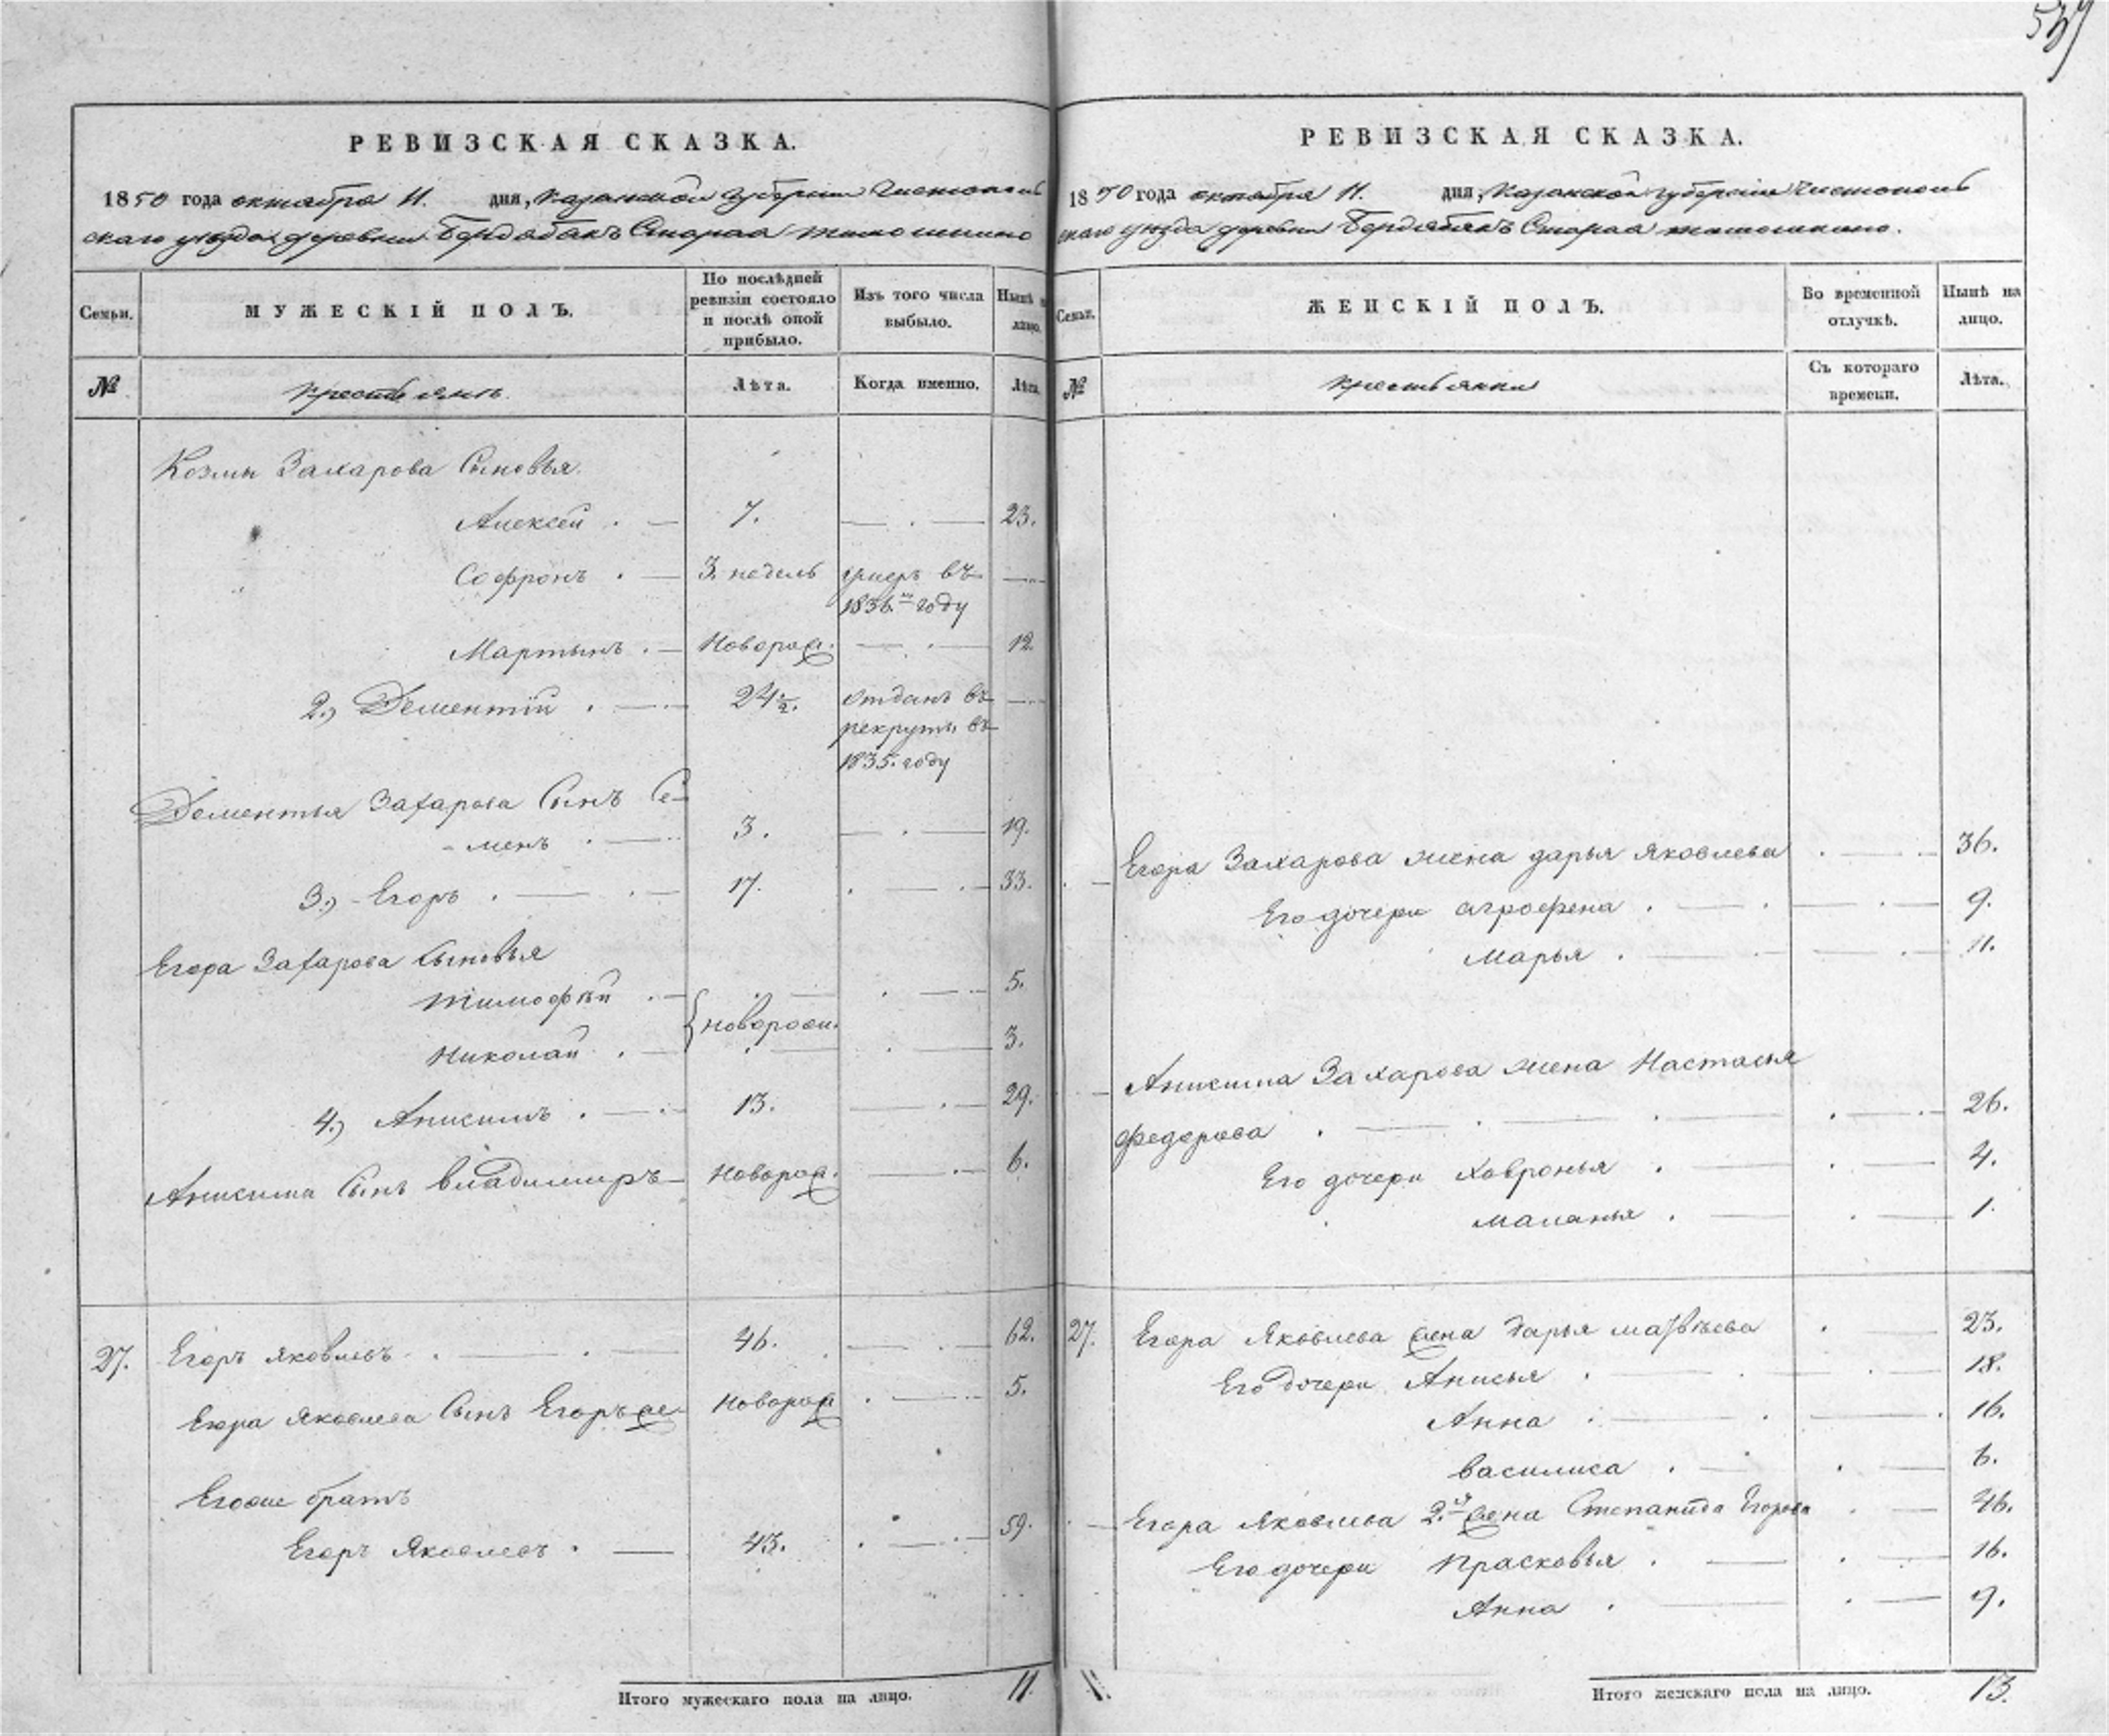 539
РЕВИЗСКАЯ СКАЗКА.
1850 года октября 11. дня, Казанской губернии Чистополь
скаго уезда деревни Бердебякъ Старая тожъ
Семьи.
МУЖЕСКІЙ ПОЛЪ.
По послѣдней ревизіи состояло и послѣ оной прибыло.
Изъ того числа выбыло.
Нынѣ на лицо.
№
крестьянъ.
Лѣта.
Когда именно.
Лѣта.
Козмы Захарова Сыновья
Алексей . — 7. — . — 23.
Софронъ . — 3. недель умеръ въ —
1836.мъ году
Мартынъ . — Новорож. — . — 12.
2.) Дементій . — 24½. отданъ въ —
рекруты въ
1835. году
Дементья Захарова Сынъ Се-
менъ . — 3. — . — 19.
3.) Егоръ . — 17. . — . — 33.
Егора Захарова Сыновья
Тимофей . — . — 5.
{ новорожд.
Николай . — . — 3.
4.) Анисимъ . — 13. — . — 29.
Анисима Сынъ Владимиръ — Новорож. — . — 6.
27. Егоръ Яковлевъ . — . — 46. . — . — 62.
Егора Яковлева Сынъ Егоръ же Новорож . — 5.
Егоже братъ
Егоръ Яковлевъ . — 43. . — . — 59.
Итого мужескаго пола на лицо. 11.
РЕВИЗСКАЯ СКАЗКА.
1850 года октября 11. дня, Казанской губерніи Чистополь
скаго уезда деревни Бердебякъ Старая
Семьи.
ЖЕНСКІЙ ПОЛЪ.
Во временной отлучкѣ.
Нынѣ на лицо.
№
крестьянки
Съ котораго времени.
Лѣта.
Егора Захарова жена дарья Яковлева . — . 36.
Его дочери агрофена . — . — . — 9.
Марья . — . — . — 11.
Анисима Захарова жена Настасья
Федорова . — . — . — . — . — 26.
Его дочери Ховронья . — . — 4.
маланья . — . — 1.
27. Егора Яковлева жена Дарья матвѣева . — 23.
Его дочери Анисья . — . — 18.
Анна . — . — . 16.
василиса . — . — 6.
Егора Яковлева 2.я жена Степанида Егорова . — 46.
Его дочери Прасковья . — . — 16.
Анна . — . — 9.
Итого женскаго пола на лицо. 13.